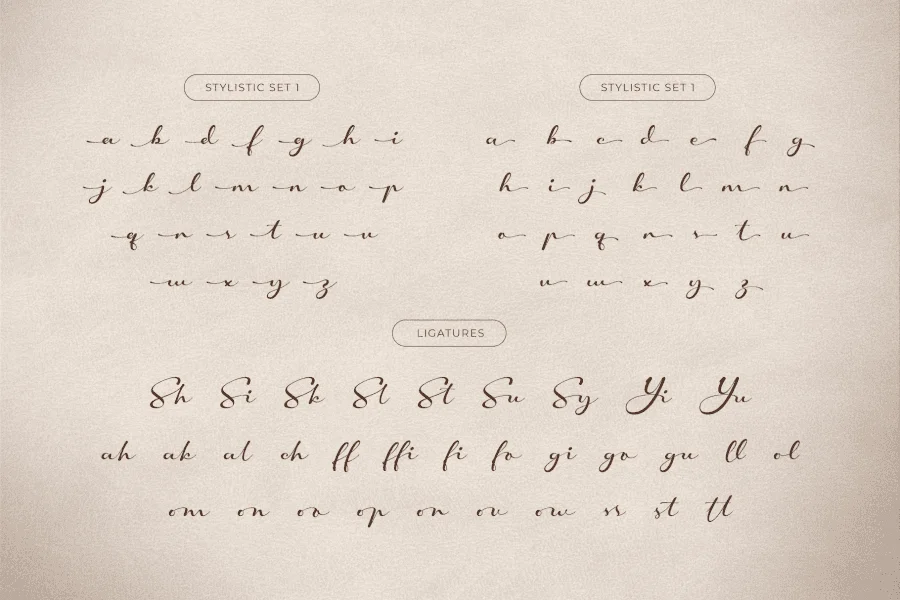 STYLISTIC SET 1
a b d f g h i
j k l m n o p
q r s t u v
w x y z
STYLISTIC SET 1
a b c d e f g
h i j k l m n
o p q r s t u
v w x y z
LIGATURES
Sh Si Sk Sl St Su Sy Yi Yu
ah ak al ch ff ffi fi fo gi go gu ll ol
om on oo op or ov ow ss st tt